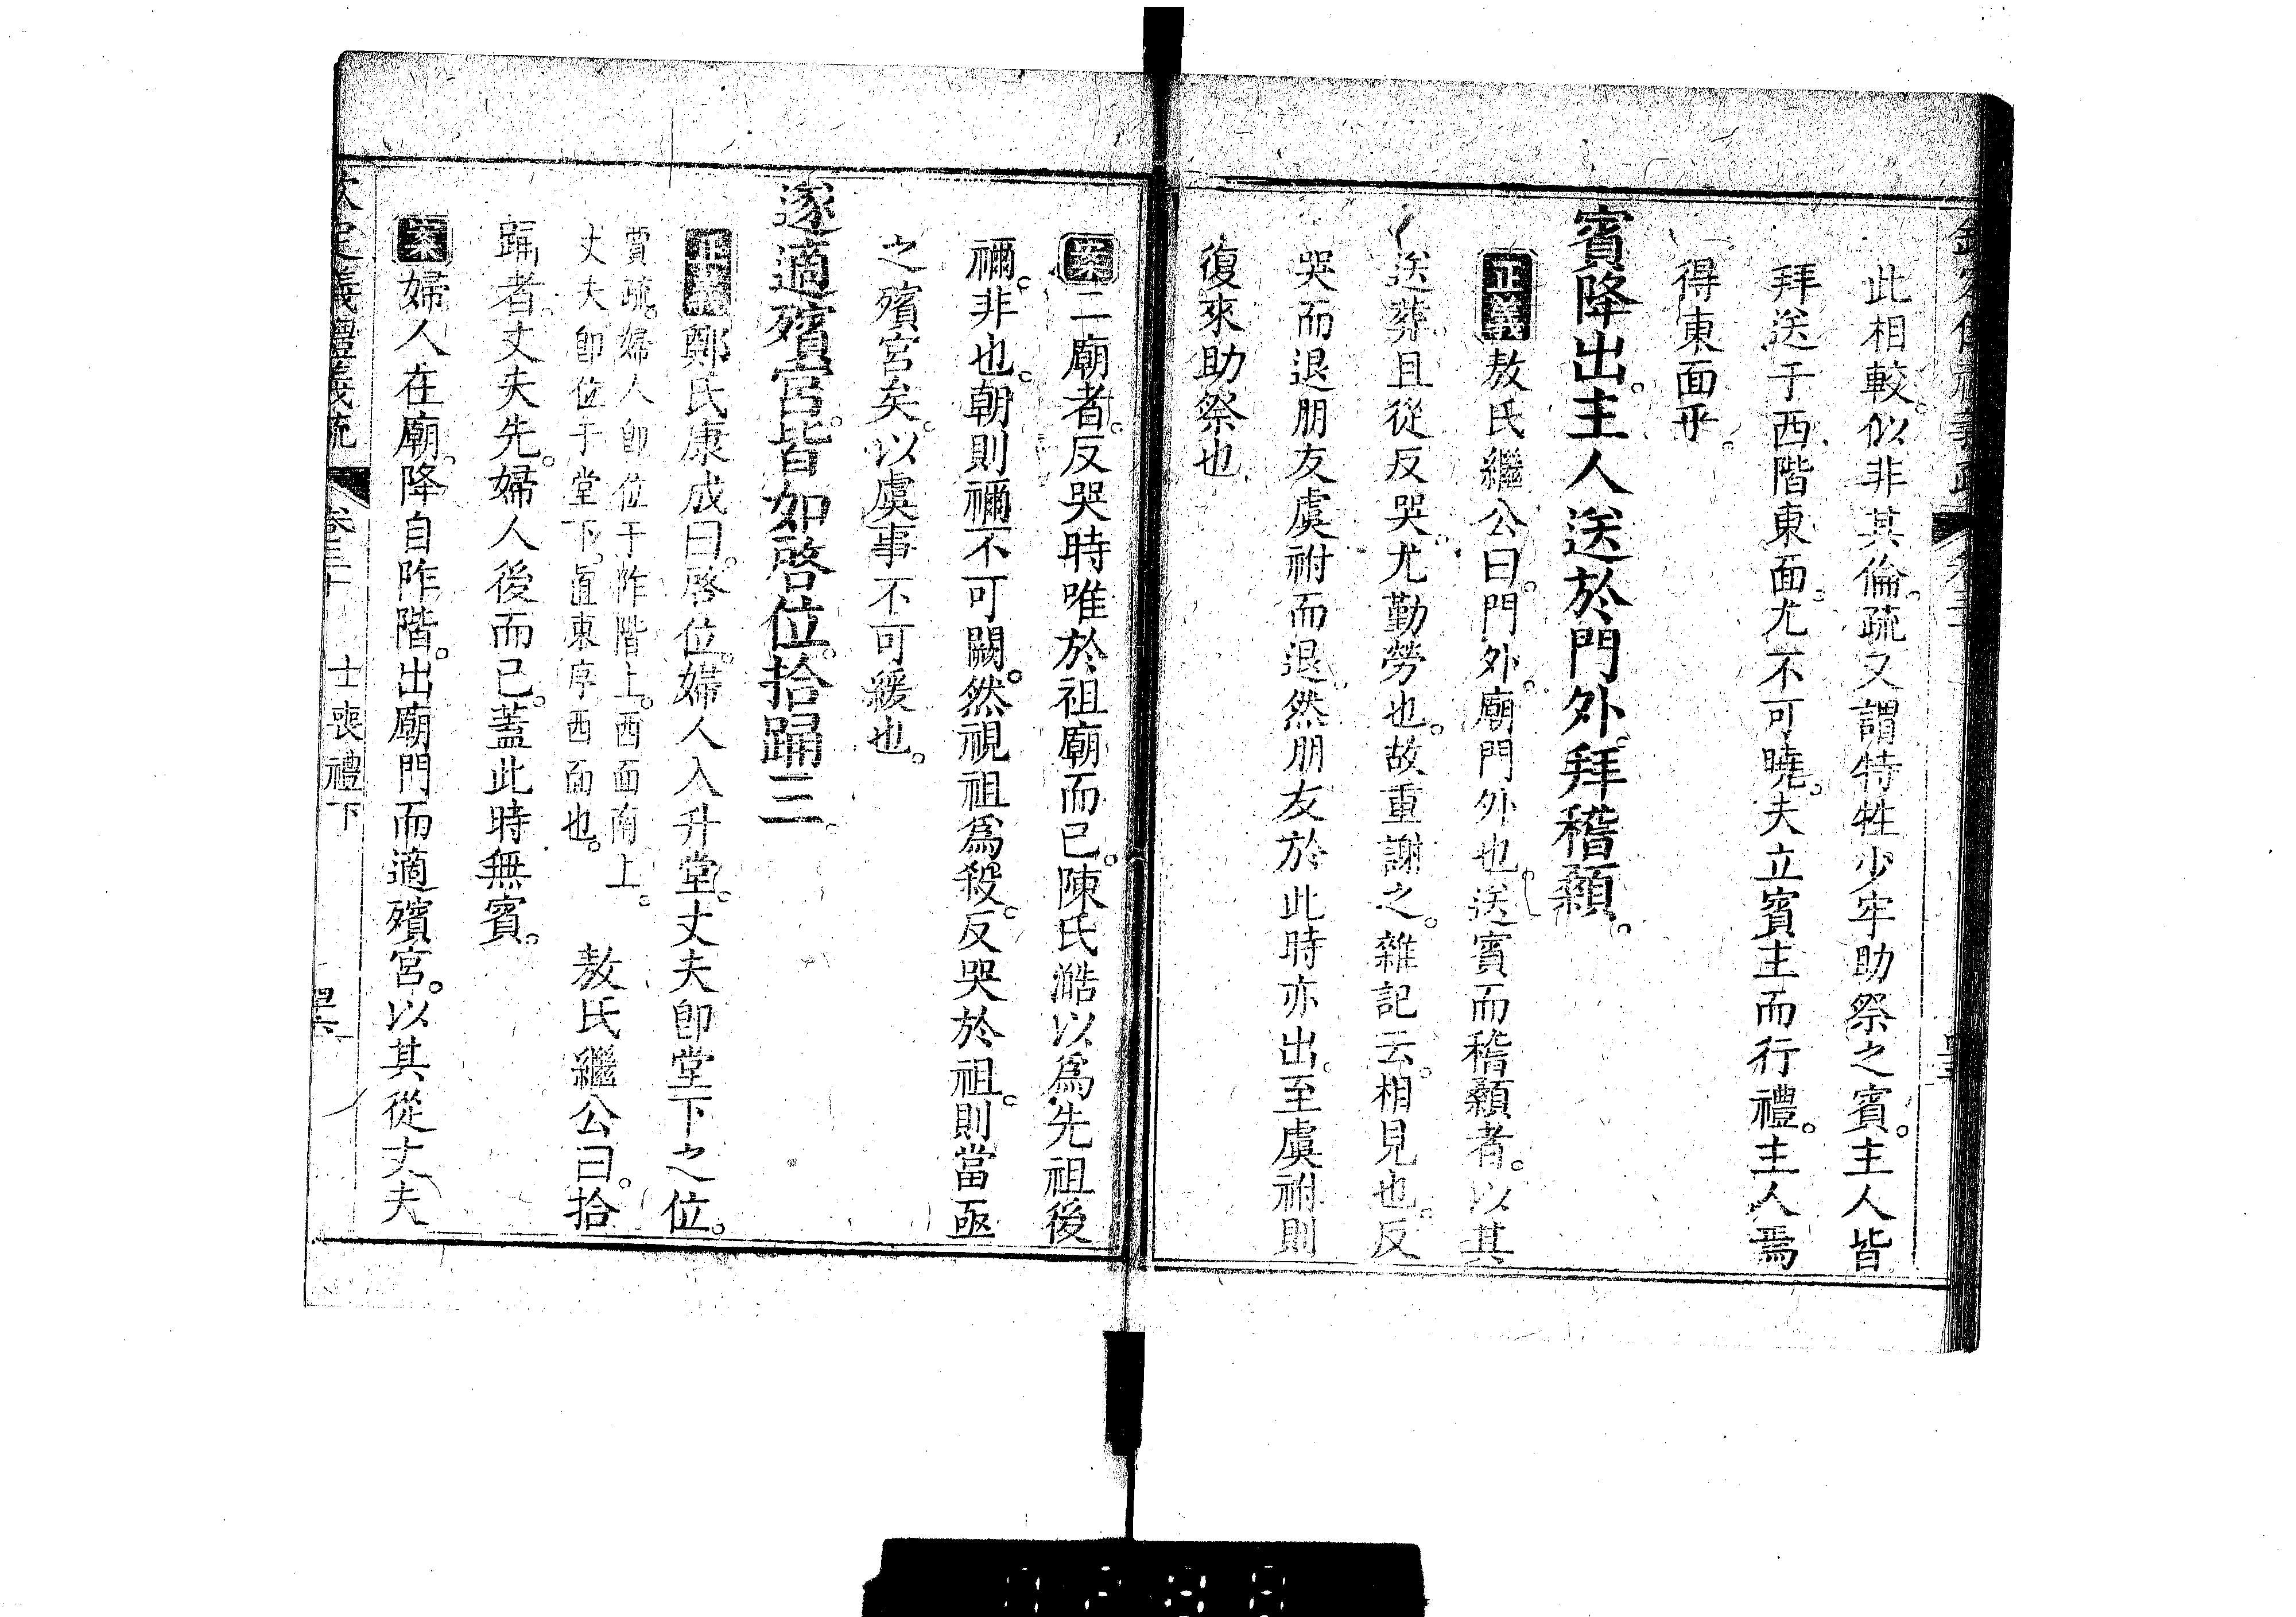 此相較。似非其倫。疏又謂特牲少牢助祭之賓。主人皆
拜送于西階東面。尤不可曉。夫立賓主而行禮。主人焉
得東面乎。
賓降出。主人送於門外。拜稽顙。
正義敖氏繼公曰。門外。廟門外也。送賓而稽顙者。以其
送葬。且從反哭。尤勤勞也。故重謝之。雜記云。相見也。反
哭而退。朋友虞祔而退。然朋友於此時亦出。至虞祔則
復來助祭也
案二廟者。反哭時唯於祖廟而已。陳氏澔以爲先祖後
禰。非也。朝則禰不可闕。然視祖爲殺。反哭於祖。則當亟
之殯宮矣。以虞事不可緩也。
遂適殯宮。皆如啓位。拾踊三。
正義鄭氏康成曰。啓位。婦人入升堂。丈夫卽堂下之位。
賈疏。婦人卽位于阼階上。西面南上。
丈夫卽位于堂下。直東序西面也。
敖氏繼公曰。拾
踊者。丈夫先。婦人後而已。蓋此時無賓。
案婦人在廟。降自阼階。出廟門而適殯宮。以其從丈夫
欽定儀禮義疏 卷三十 士喪禮下